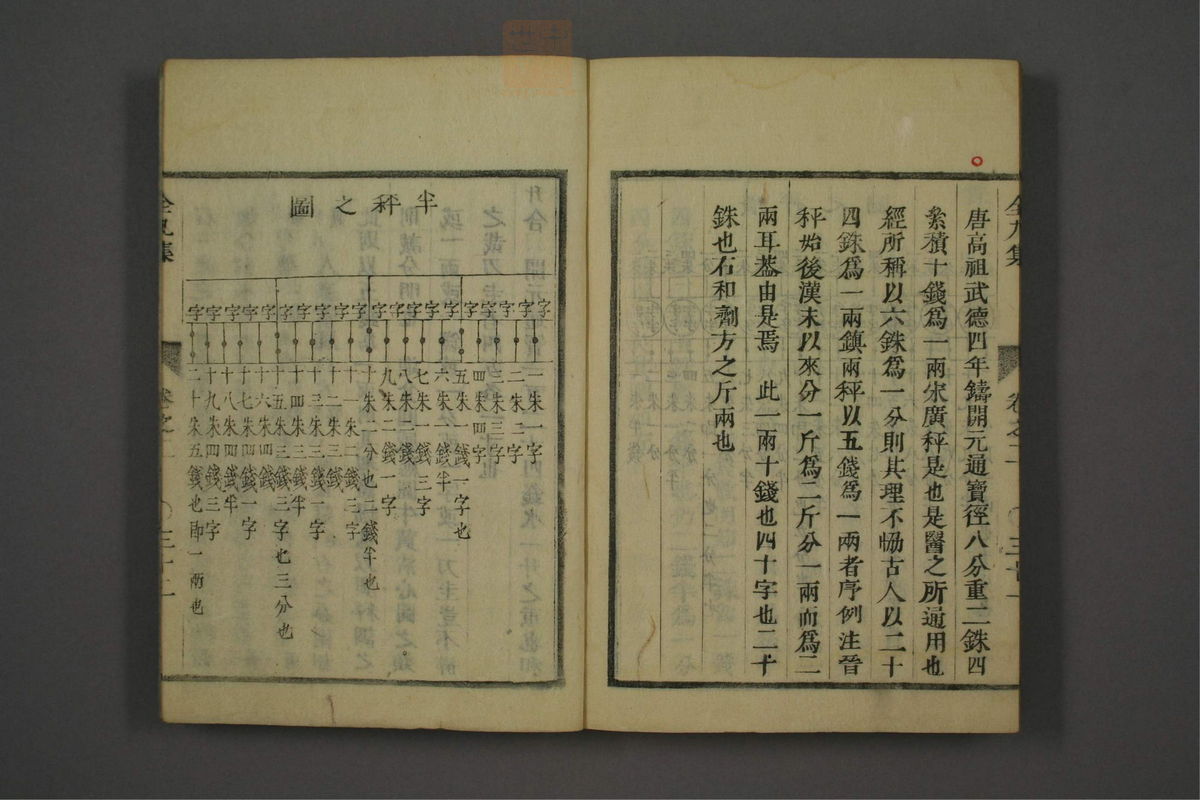 唐高祖武德四年鑄開元通寶徑八分重二銖四
絫積十錢爲一兩宋廣秤是也是醫之所通用也
經所稱以六銖爲一分則其理不恊古人以二十
四銖爲一兩鎮兩秤以五錢爲一兩者序例注晉
秤始後漢末以來分一斤爲二斤分一兩而爲二
兩耳葢由是焉 此一兩十錢也四十字也二十
銖也右和劑方之斤兩也
半秤之圖
字字字字字字字字字字字字字字字字字字字字
一朱一字
二朱二字
三朱三字
四朱四字
五朱一錢一字也
六朱一錢半
七朱一錢三字
八朱二錢
九朱二錢一字
十朱二分也二錢半也
十一朱二錢三字
十二朱三錢
十三朱三錢一字
十四朱三錢半
十五朱三錢三字也三分也
十六朱四錢
十七朱四錢一字
十八朱四錢半
十九朱四錢三字
二十朱五錢也即一兩也
全九集